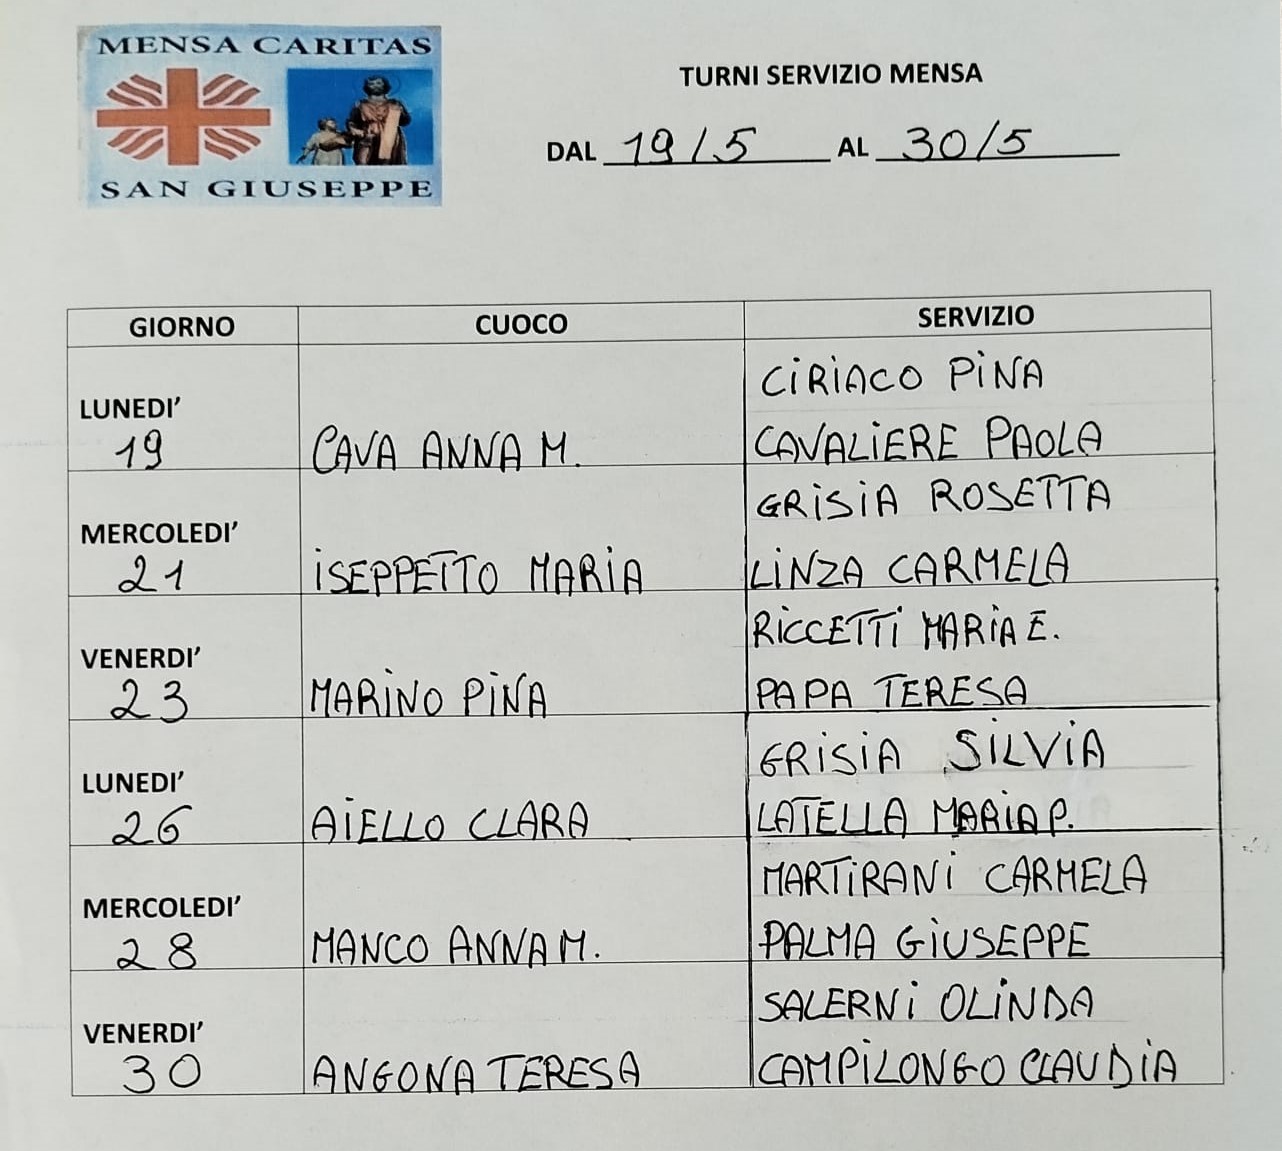 MENSA CARITAS
SAN GIUSEPPE
TURNI SERVIZIO MENSA
DAL 19/5 AL 30/5
GIORNO CUOCO SERVIZIO
CIRIACO PINA
LUNEDI’
19 CAVA ANNA M. CAVALIERE PAOLA
GRISIA ROSETTA
MERCOLEDI’
21 ISEPPETTO MARIA LINZA CARMELA
RICCETTI MARIA E.
VENERDI’
23 MARINO PINA PAPA TERESA
GRISIA SILVIA
LUNEDI’
26 AIELLO CLARA LATELLA MARIA P.
MARTIRANI CARMELA
MERCOLEDI’
28 MANCO ANNA M. PALMA GIUSEPPE
SALERNI OLINDA
VENERDI’
30 ANGONA TERESA CAMPILONGO CLAUDIA